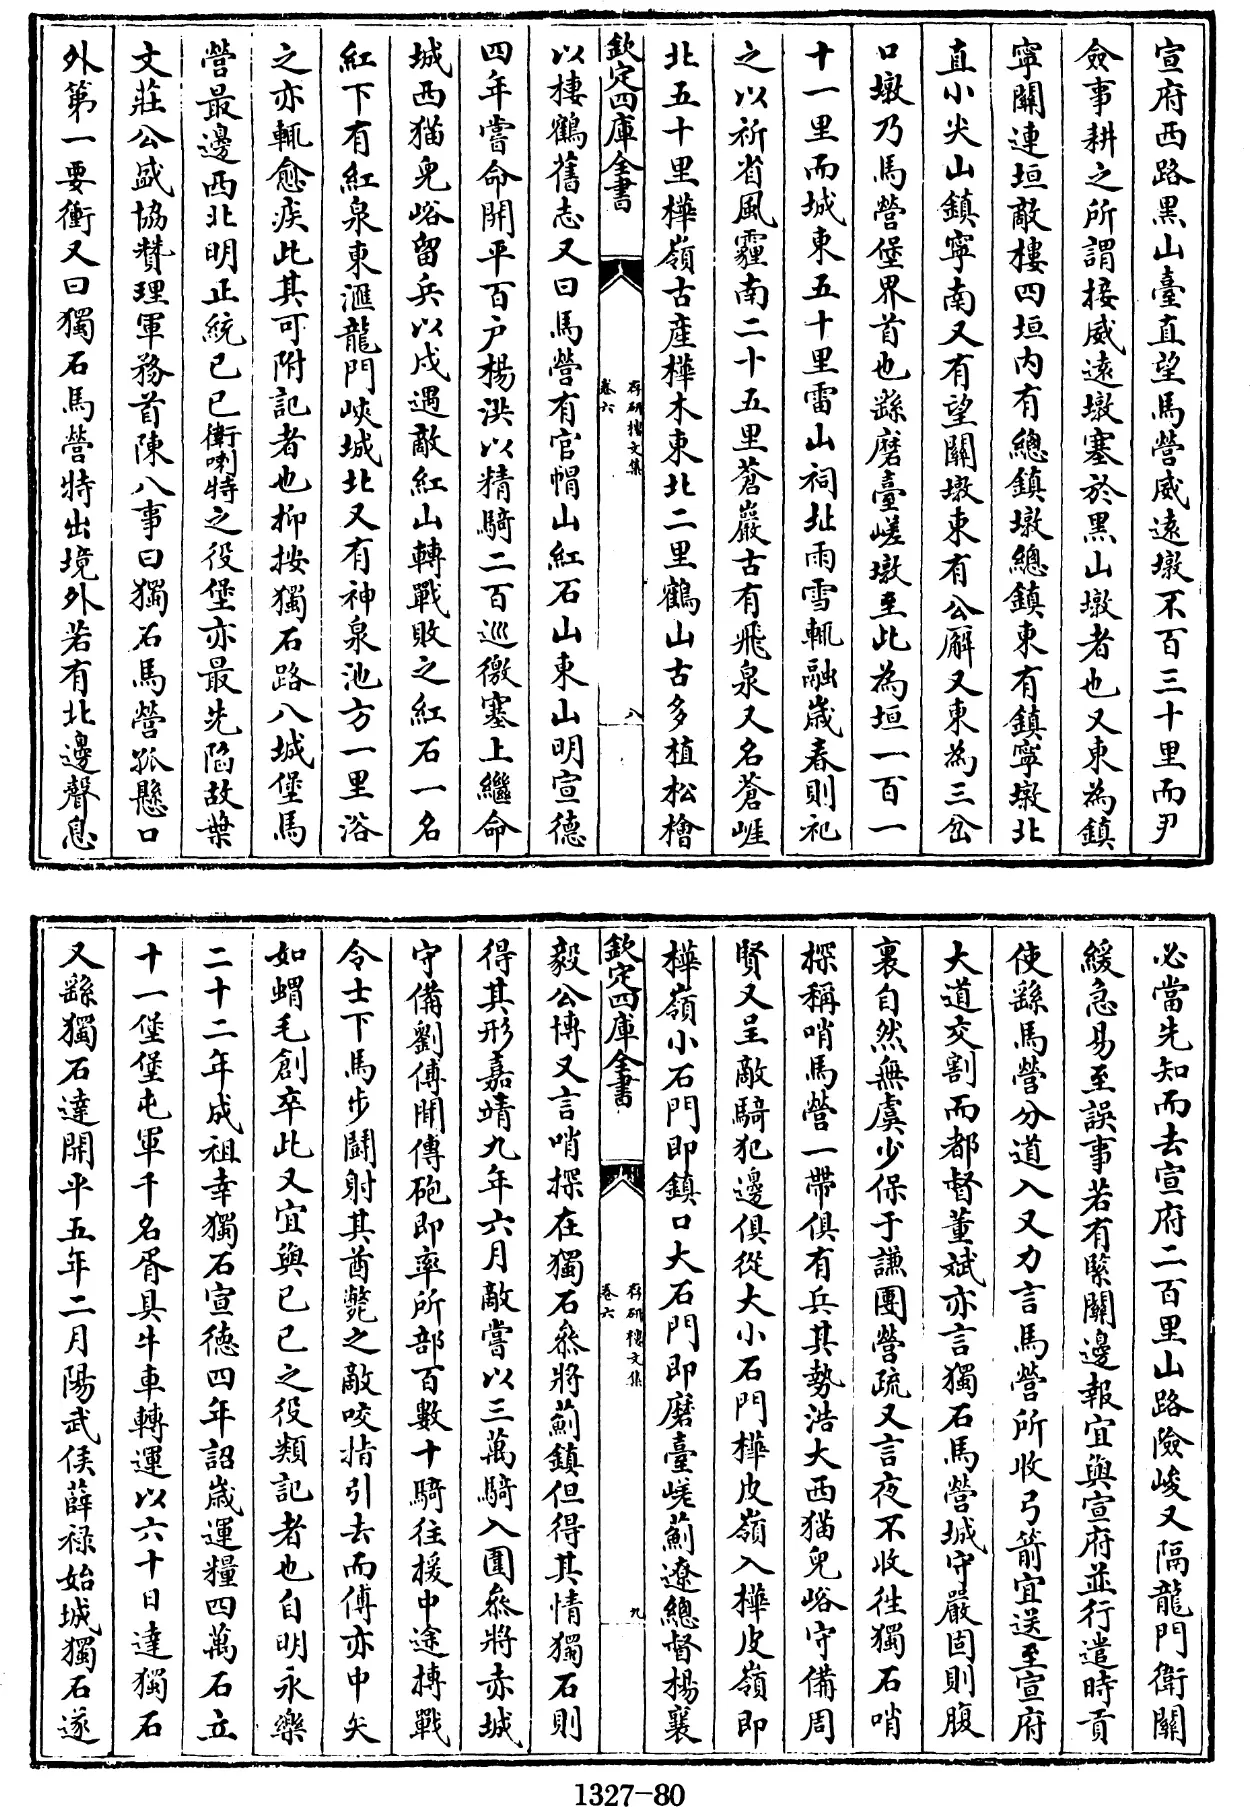 宣府西路黑山臺直望馬營威遠墩不百三十里而尹
僉事耕之所謂接威遠墩塞於黑山墩者也又東為鎮
寧關連垣敵樓四垣内有總鎮墩總鎮東有鎮寧墩北
直小尖山鎮寧南又有望關墩東有公廨又東為三岔
口墩乃馬營堡界首也繇磨臺嵯墩至此為垣一百一
十一里而城東五十里雷山祠址雨雪輒融歲春則祀
之以祈省風霾南二十五里蒼巖古有飛泉又名蒼崕
北五十里樺嶺古産樺木東北二里鶴山古多植松檜
欽定四庫全書
存硏樓文集
卷六
八
以棲鶴舊志又曰馬營有官帽山紅石山東山明宣德
四年嘗命開平百户楊洪以精騎二百巡徼塞上繼命
城西猫兒峪留兵以戍遇敵紅山轉戰敗之紅石一名
紅下有紅泉東滙龍門峽城北又有神泉池方一里浴
之亦輒愈疾此其可附記者也抑按獨石路八城堡馬
營最邊西北明正統己巳衛喇特之役堡亦最先陷故葉
文莊公盛協賛理軍務首陳八事曰獨石馬營孤懸口
外第一要衝又曰獨石馬營特出境外若有北邊聲息
必當先知而去宣府二百里山路險峻又隔龍門衛關
緩急易至誤事若有緊關邊報宜與宣府並行遣時貢
使繇馬營分道入又力言馬營所收弓箭宜送至宣府
大道交割而都督董斌亦言獨石馬營城守嚴固則腹
裏自然無虞少保于謙團營疏又言夜不收徃獨石哨
探稱哨馬營一帶俱有兵其勢浩大西猫兒峪守備周
賢又呈敵騎犯邊俱從大小石門樺皮嶺入樺皮嶺即
樺嶺小石門即鎮口大石門即磨臺嵯薊遼總督楊襄
欽定四庫全書
存硏樓文集
卷六
九
毅公博又言哨探在獨石叅將薊鎮但得其情獨石則
得其形嘉靖九年六月敵嘗以三萬騎入圍叅將赤城
守備劉傅聞傳砲即率所部百數十騎往援中途搏戰
令士下馬步鬭射其酋斃之敵咬指引去而傅亦中矢
如蝟毛創卒此又宜與己巳之役類記者也自明永樂
二十二年成祖幸獨石宣德四年詔歲運糧四萬石立
十一堡堡屯軍千名胥具牛車轉運以六十日達獨石
又繇獨石達開平五年二月陽武侯薛禄始城獨石遂
1327-80